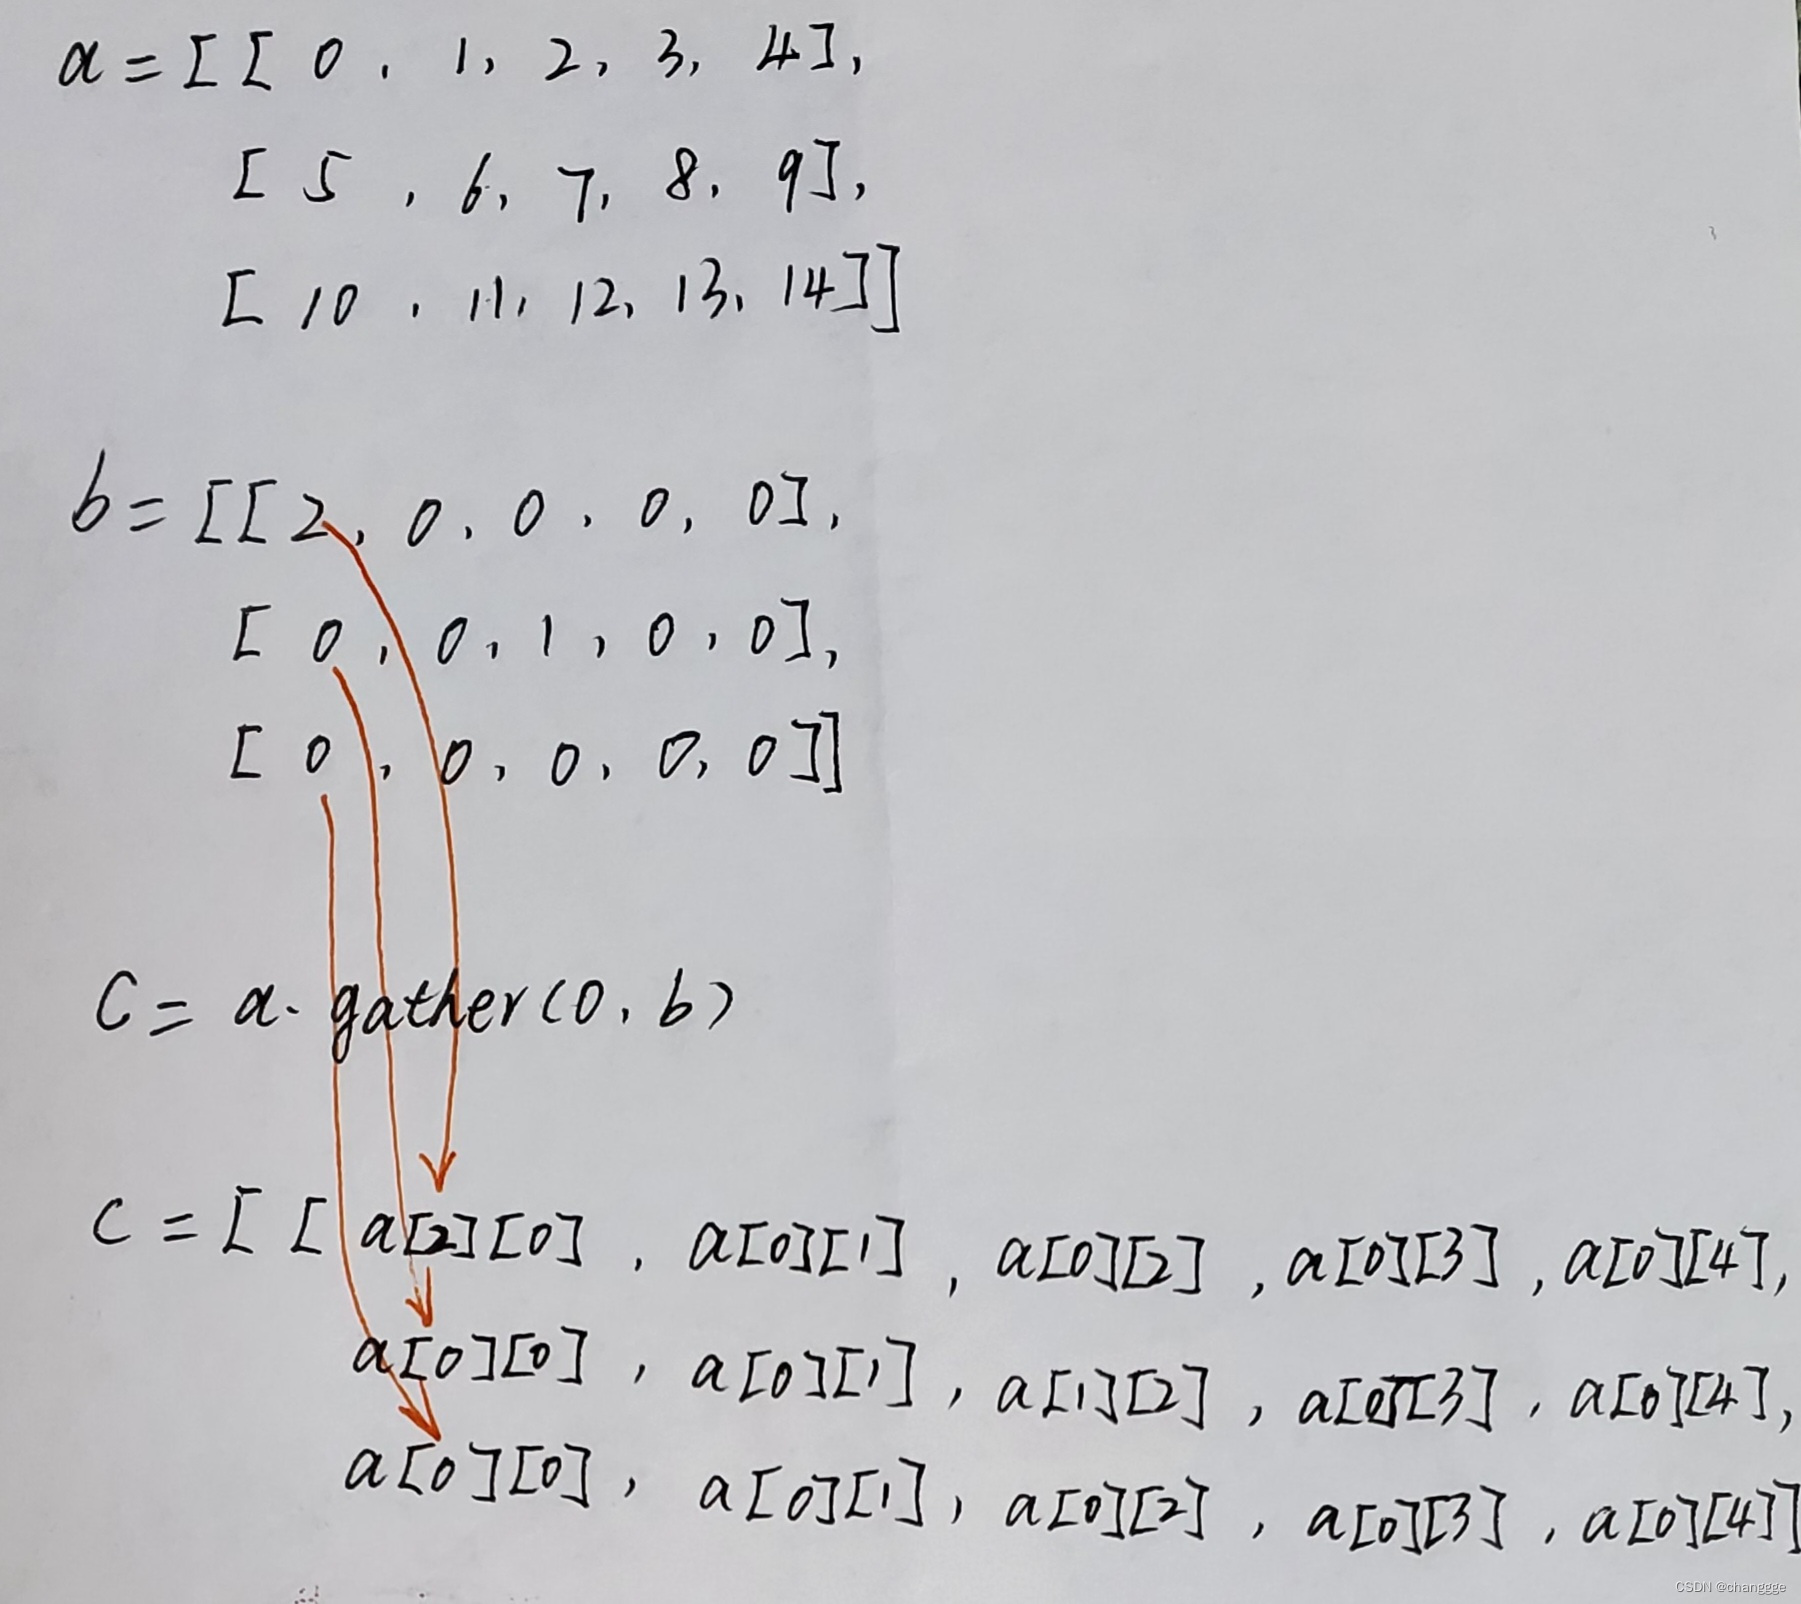 a = [[0, 1, 2, 3, 4],
[5, 6, 7, 8, 9],
[10, 11, 12, 13, 14]]
b = [[2, 0, 0, 0, 0],
[0, 0, 1, 0, 0],
[0, 0, 0, 0, 0]]
C = a.gather(0, b)
C = [[a[2][0], a[0][1], a[0][2], a[0][3], a[0][4],
a[0][0], a[0][1], a[1][2], a[0][3], a[0][4],
a[0][0], a[0][1], a[0][2], a[0][3], a[0][4]]
CSDN @changgge